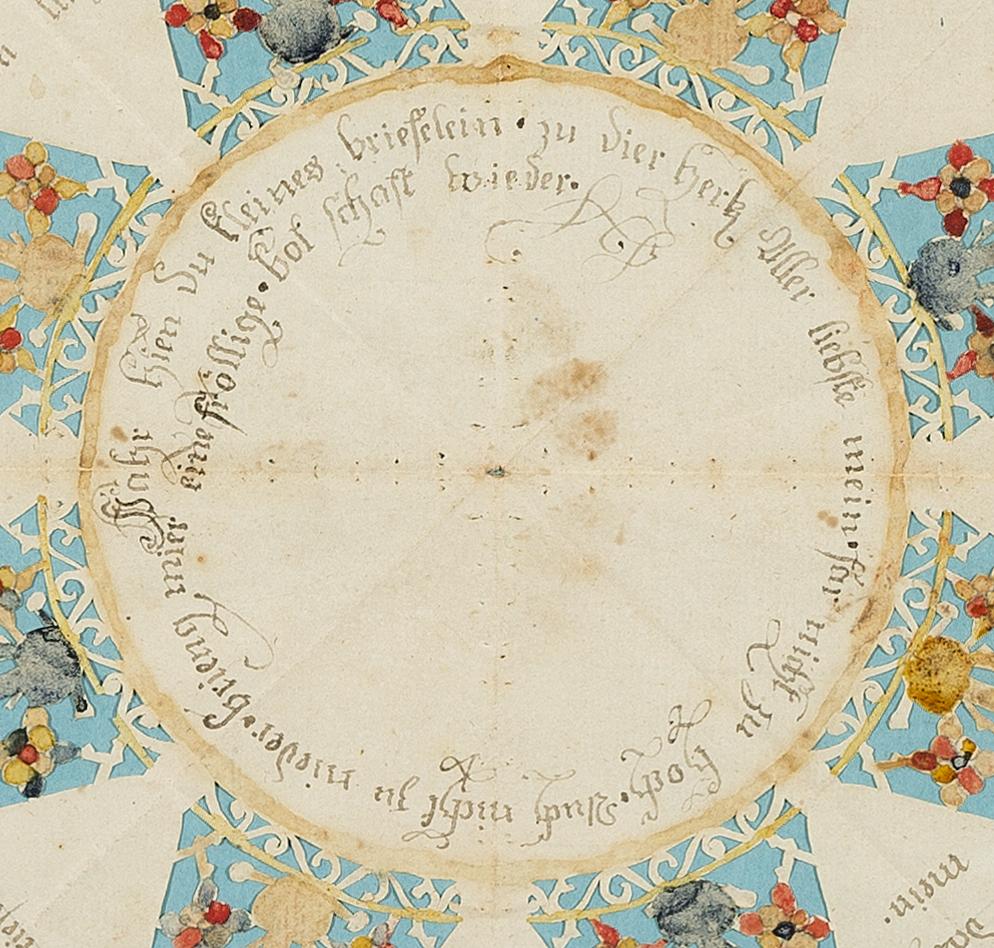 Fahr hien du kleines briefelein · zu dier hertz Aller liebste mein · far nicht zu hoch · Auch nicht zu nieder · bring mier
eine fröllige · bot schaft wieder.
mein.